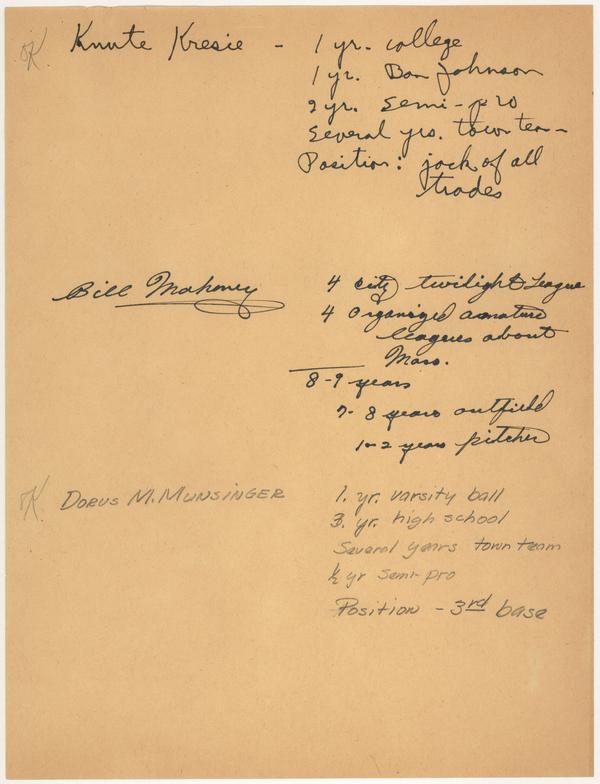 OK Knute Kresie - 1 yr. college
1 yr. Ban Johnson
2 yr. semi-pro
Several yrs. town team
Position: jack of all
trades
Bill Mahoney 4 city twilight League
4 Organized amature
leagues about
Mass.
8-9 years
7-8 years outfield
1-2 years pitcher
OK DORUS M. MUNSINGER 1. yr. varsity ball
3. yr. high school
Several years town team
½ yr semi-pro
Position - 3rd base